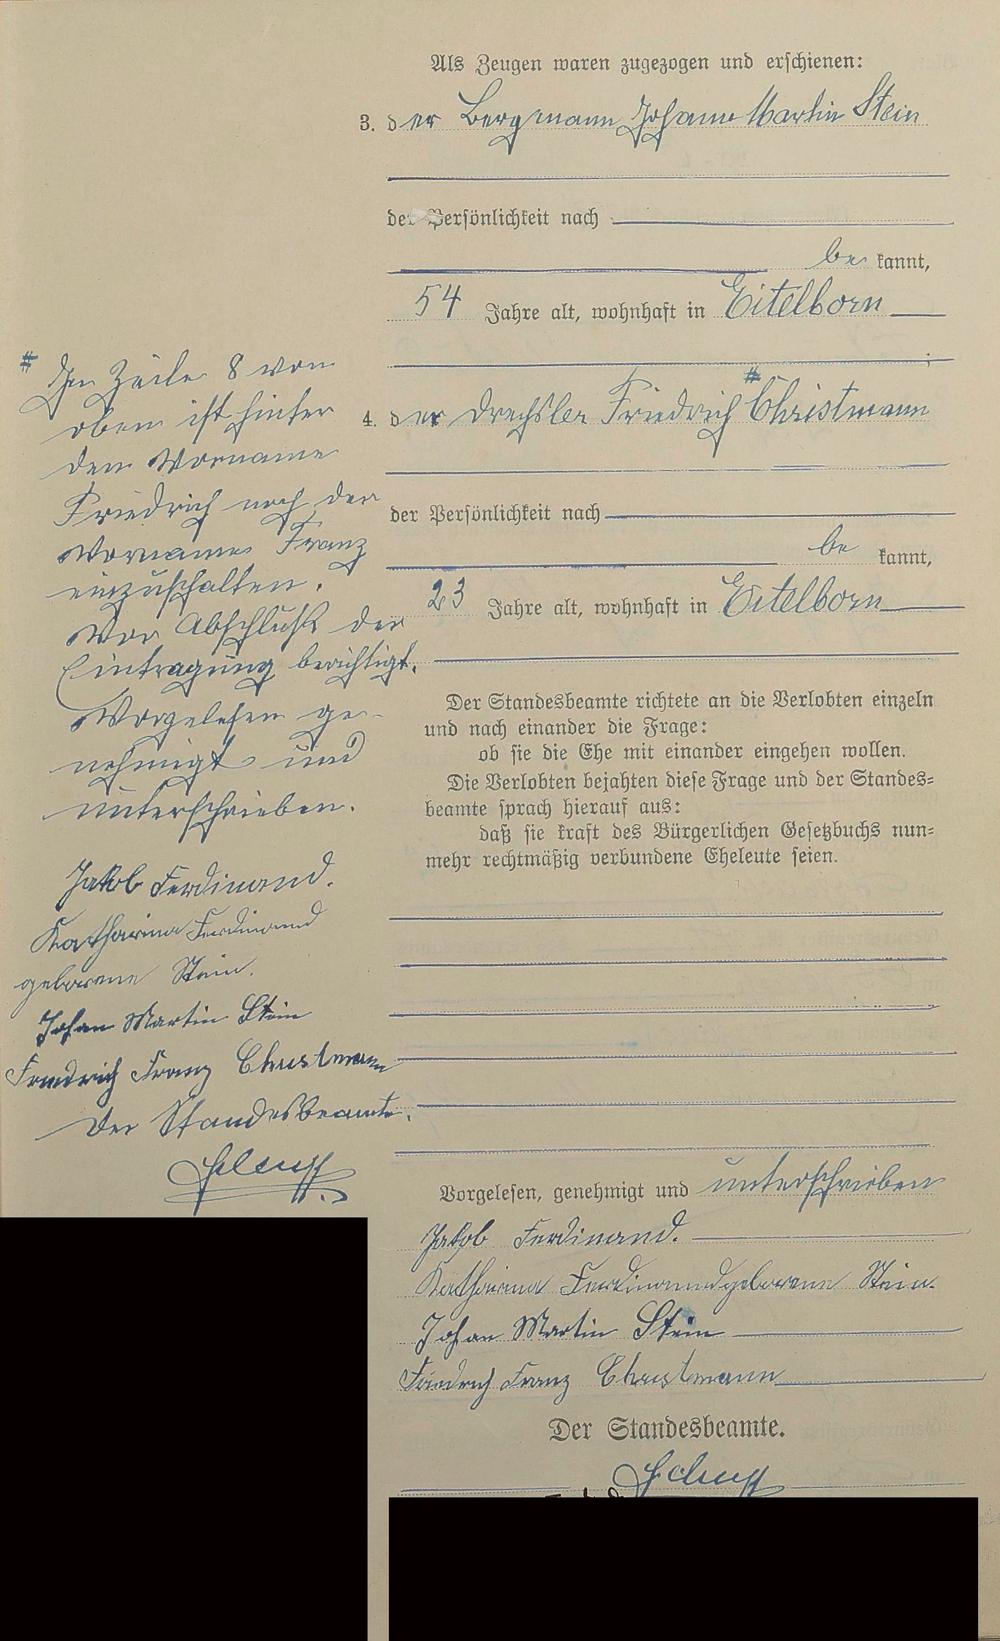 Als Zeugen waren zugezogen und erschienen:
3. der Bergmann Johann Martin Stein
der Persönlichkeit nach
be kannt,
54 Jahre alt, wohnhaft in Eitelborn
;
4. der Drechsler Friedrich # Christmann
der Persönlichkeit nach
be kannt,
23 Jahre alt, wohnhaft in Eitelborn
Der Standesbeamte richtete an die Verlobten einzeln
und nach einander die Frage:
ob sie die Ehe mit einander eingehen wollen.
Die Verlobten bejahten diese Frage und der Standes=
beamte sprach hierauf aus:
daß sie kraft des Bürgerlichen Gesetzbuchs nun=
mehr rechtmäßig verbundene Eheleute seien.
Vorgelesen, genehmigt und unterschrieben
Jakob Ferdinand.
Katharina Ferdinand geborene Stein.
Johan Martin Stein
Friedrich Franz Christmann
Der Standesbeamte.
# In Zeile 8 von
oben ist hinter
dem Vorname
Friedrich noch der
Vorname Franz
einzuschalten.
Vor Abschluß der
Eintragung berichtigt.
Vorgelesen ge-
nehmigt und
unterschrieben.
Jakob Ferdinand.
Katharina Ferdinand
geborene Stein.
Johan Martin Stein
Friedrich Franz Christmann
Der Standesbeamte.